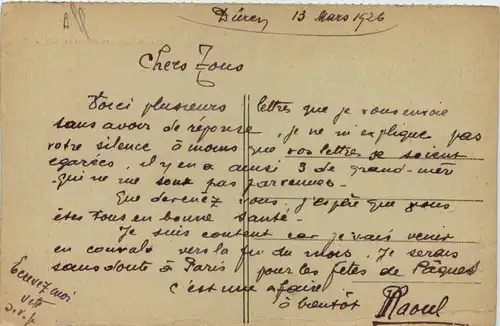 Düren 13 Mars 1926
Chers Tous
Voici plusieurs lettres que je vous envoie
sans avoir de réponse, je ne m'explique pas
votre silence à moins que vos lettres se soient
égarées, il y en a aussi 3 de grand-mèr
qui ne me sont pas parvenues.
Que devenez vous, j'espère que vous
êtes tous en bonne santé.
Je suis content car je vais venir
en convals vers la fin du mois. Je serais
sans doute à Paris pour les fêtes de Pâques
c'est une affaire
à bientôt Raoul
Ecrivez moi
vite
S.V.P